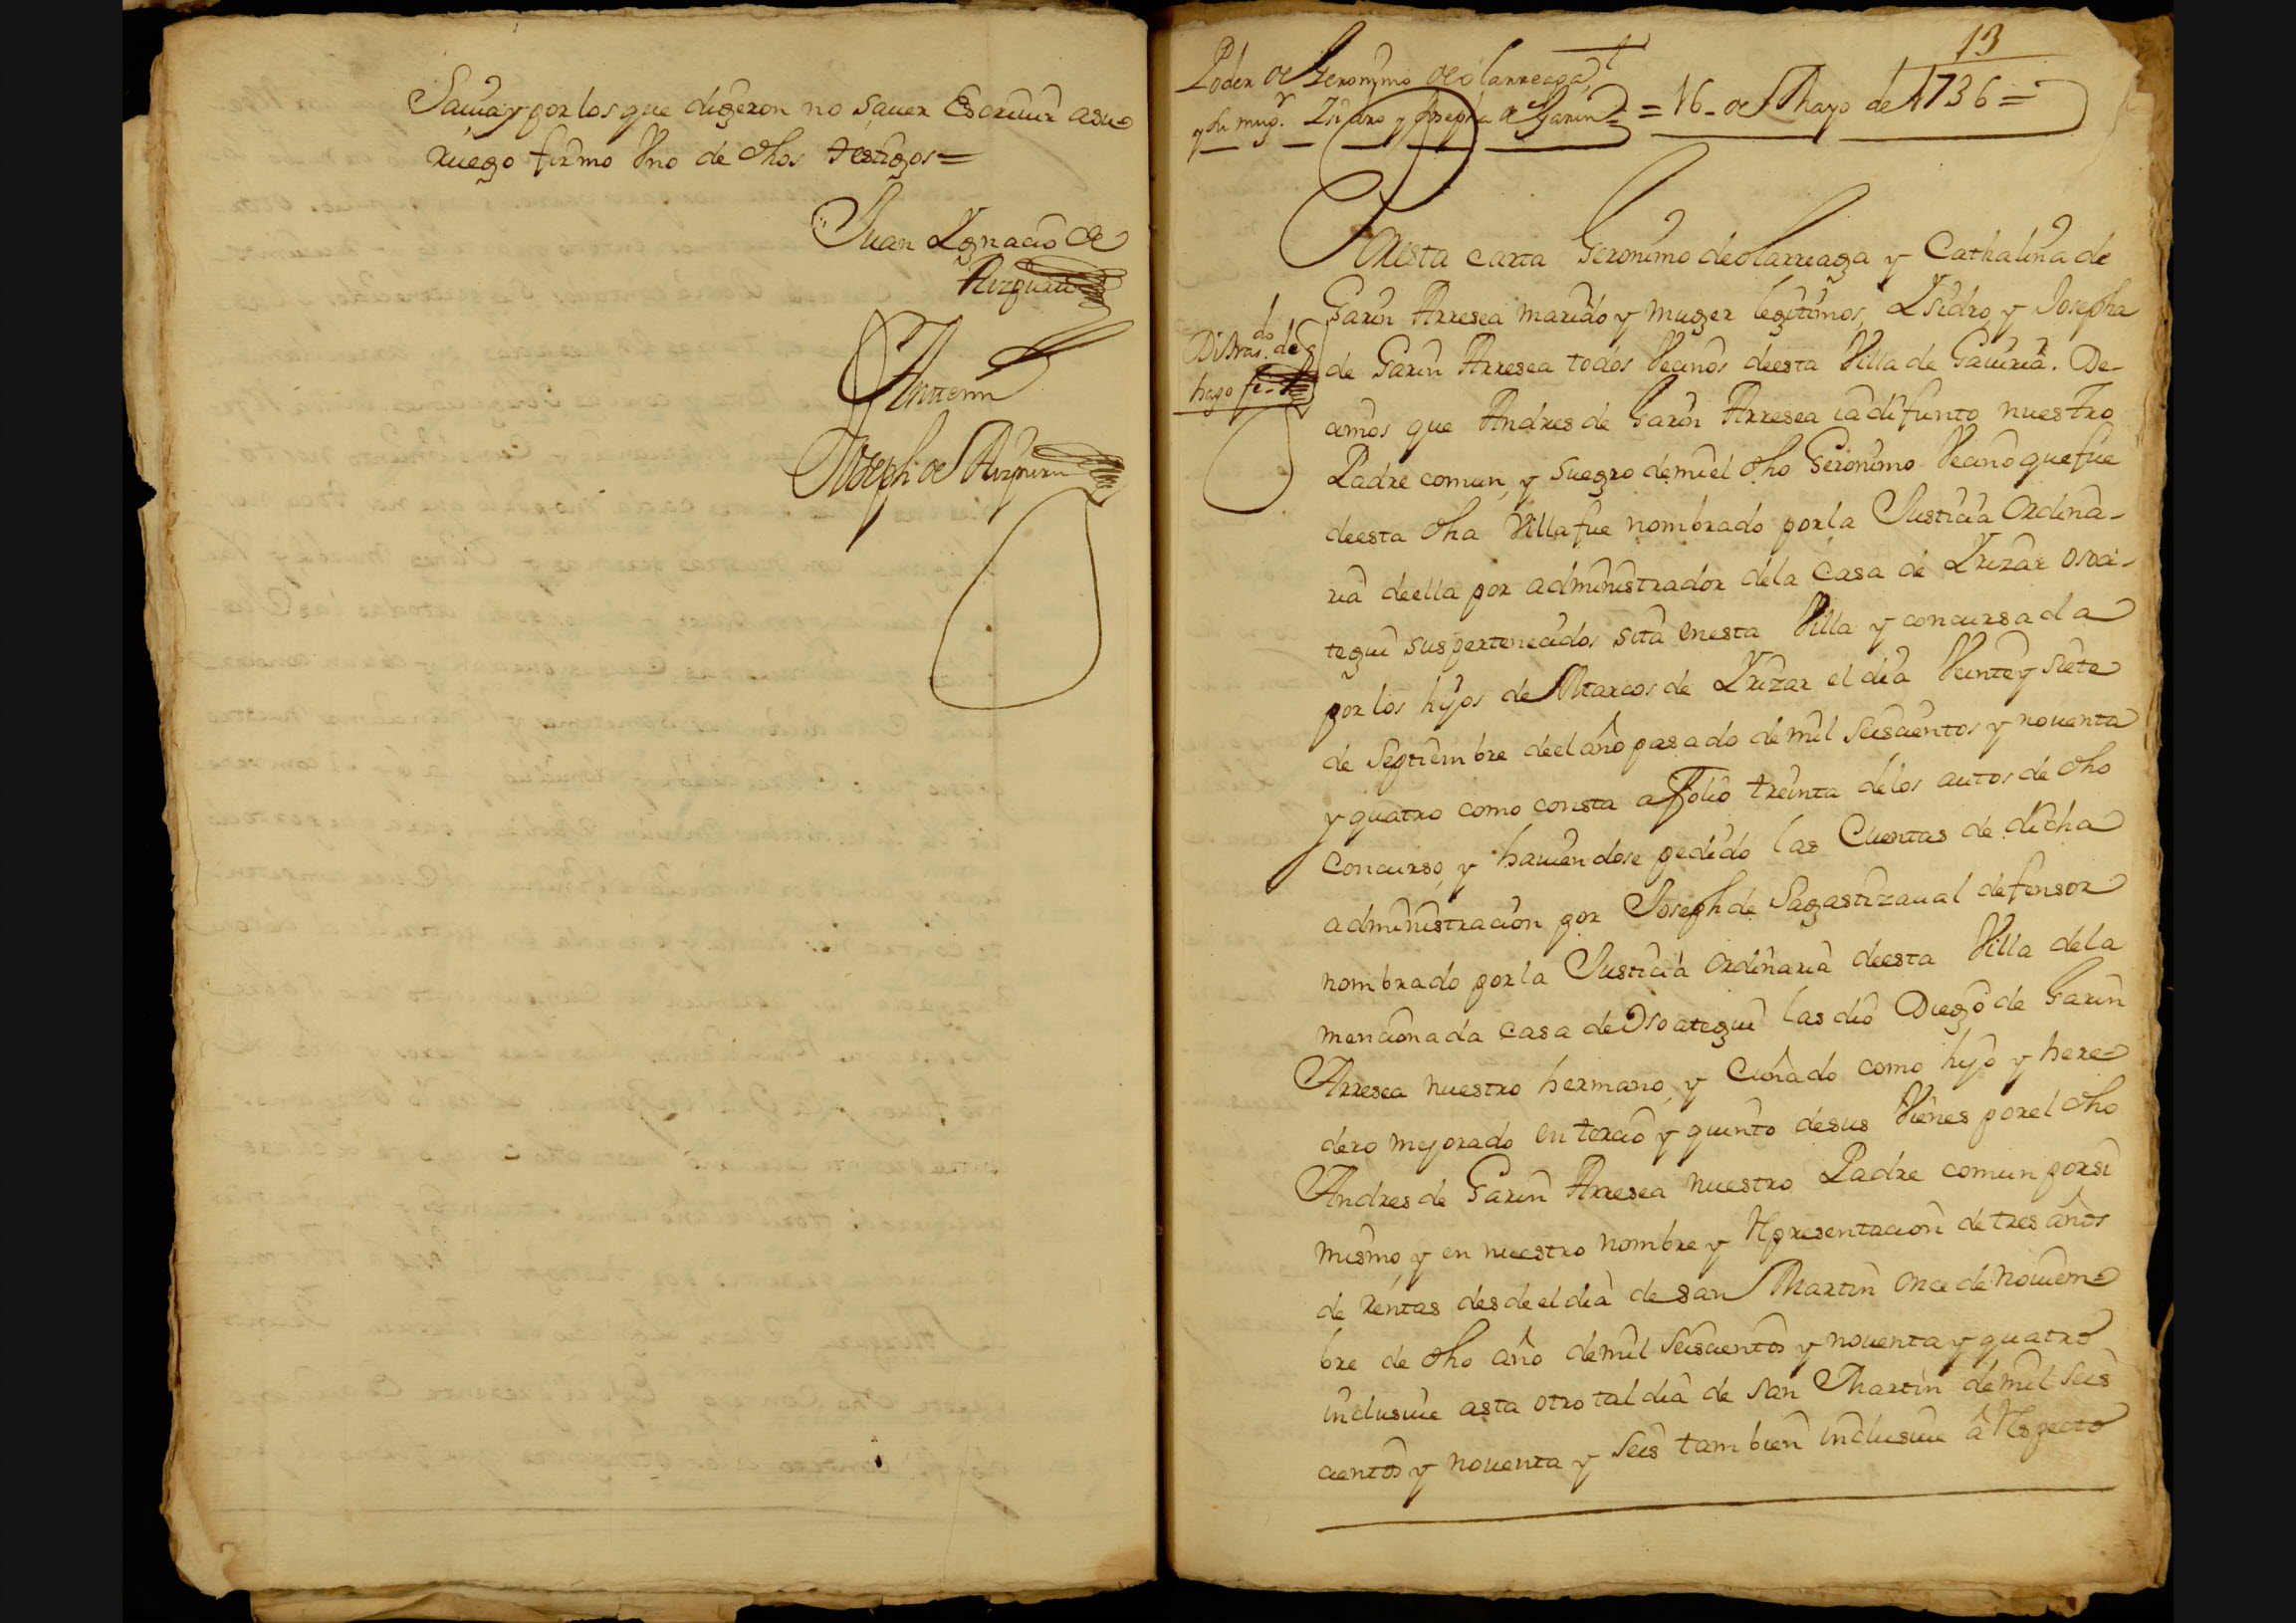 Sauia y por los que digeron no sauer Escriuir asu
ruego firmo Vno de dhos testigos =
Juan Ygnacio de
Aizpuru
Antemi
Joseph de Aizpuru
13
Poder de Geronymo de olarreaga,
y su mug.r Ysidro y Josepha de Garin = = 16 - de Mayo de 1736 =
Por esta carta Geronimo de olarreaga y Cathalina de
Garin Arresea marido y muger legitimos, Ysidro y Josepha
de Garin Arresea todos Vecinos deesta Villa de Gauiria. De-
Di tras.do de
hago fe -
cimos que Andres de Garin Arresea ia difunto nuestro
Padre comun, y suegro demi el dho Geronimo Vecino que fue
deesta dha Villa fue nombrado por la Justicia Ordina-
ria deella por administrador dela Casa de Yrizar osoa-
tegui sus pertenecidos sita enesta Villa y concursada
por los hijos de Marcos de Yrizar el dia Veinte y siete
de Septiembre deel año pasado de mil seiscientos y nouenta
y quatro como consta a Folio treinta delos autos de dho
Concurso, y hauiendose pedido las Cuentas de dicha
administracion por Joseph de Sagastizaual defensor
nombrado por la Justicia Ordinaria deesta Villa dela
mencionada casa de Osoategui las dio Diego de Garin
Arresea nuestro hermano, y Cuñado como hijo y here-
dero mejorado en tercio y quinto desus Vienes por el dho
Andres de Garin Arresea nuestro Padre comun por si
mismo, y en nuestro nombre y Representacion de tres años
de rentas desde el dia de san Martin once de Nouiem-
bre de dho año demil seiscientos y nouenta y quatro
inclusiue asta otro tal dia de san Martin demil seis
cientos y nouenta y seis tambien inclusiue â Respecto